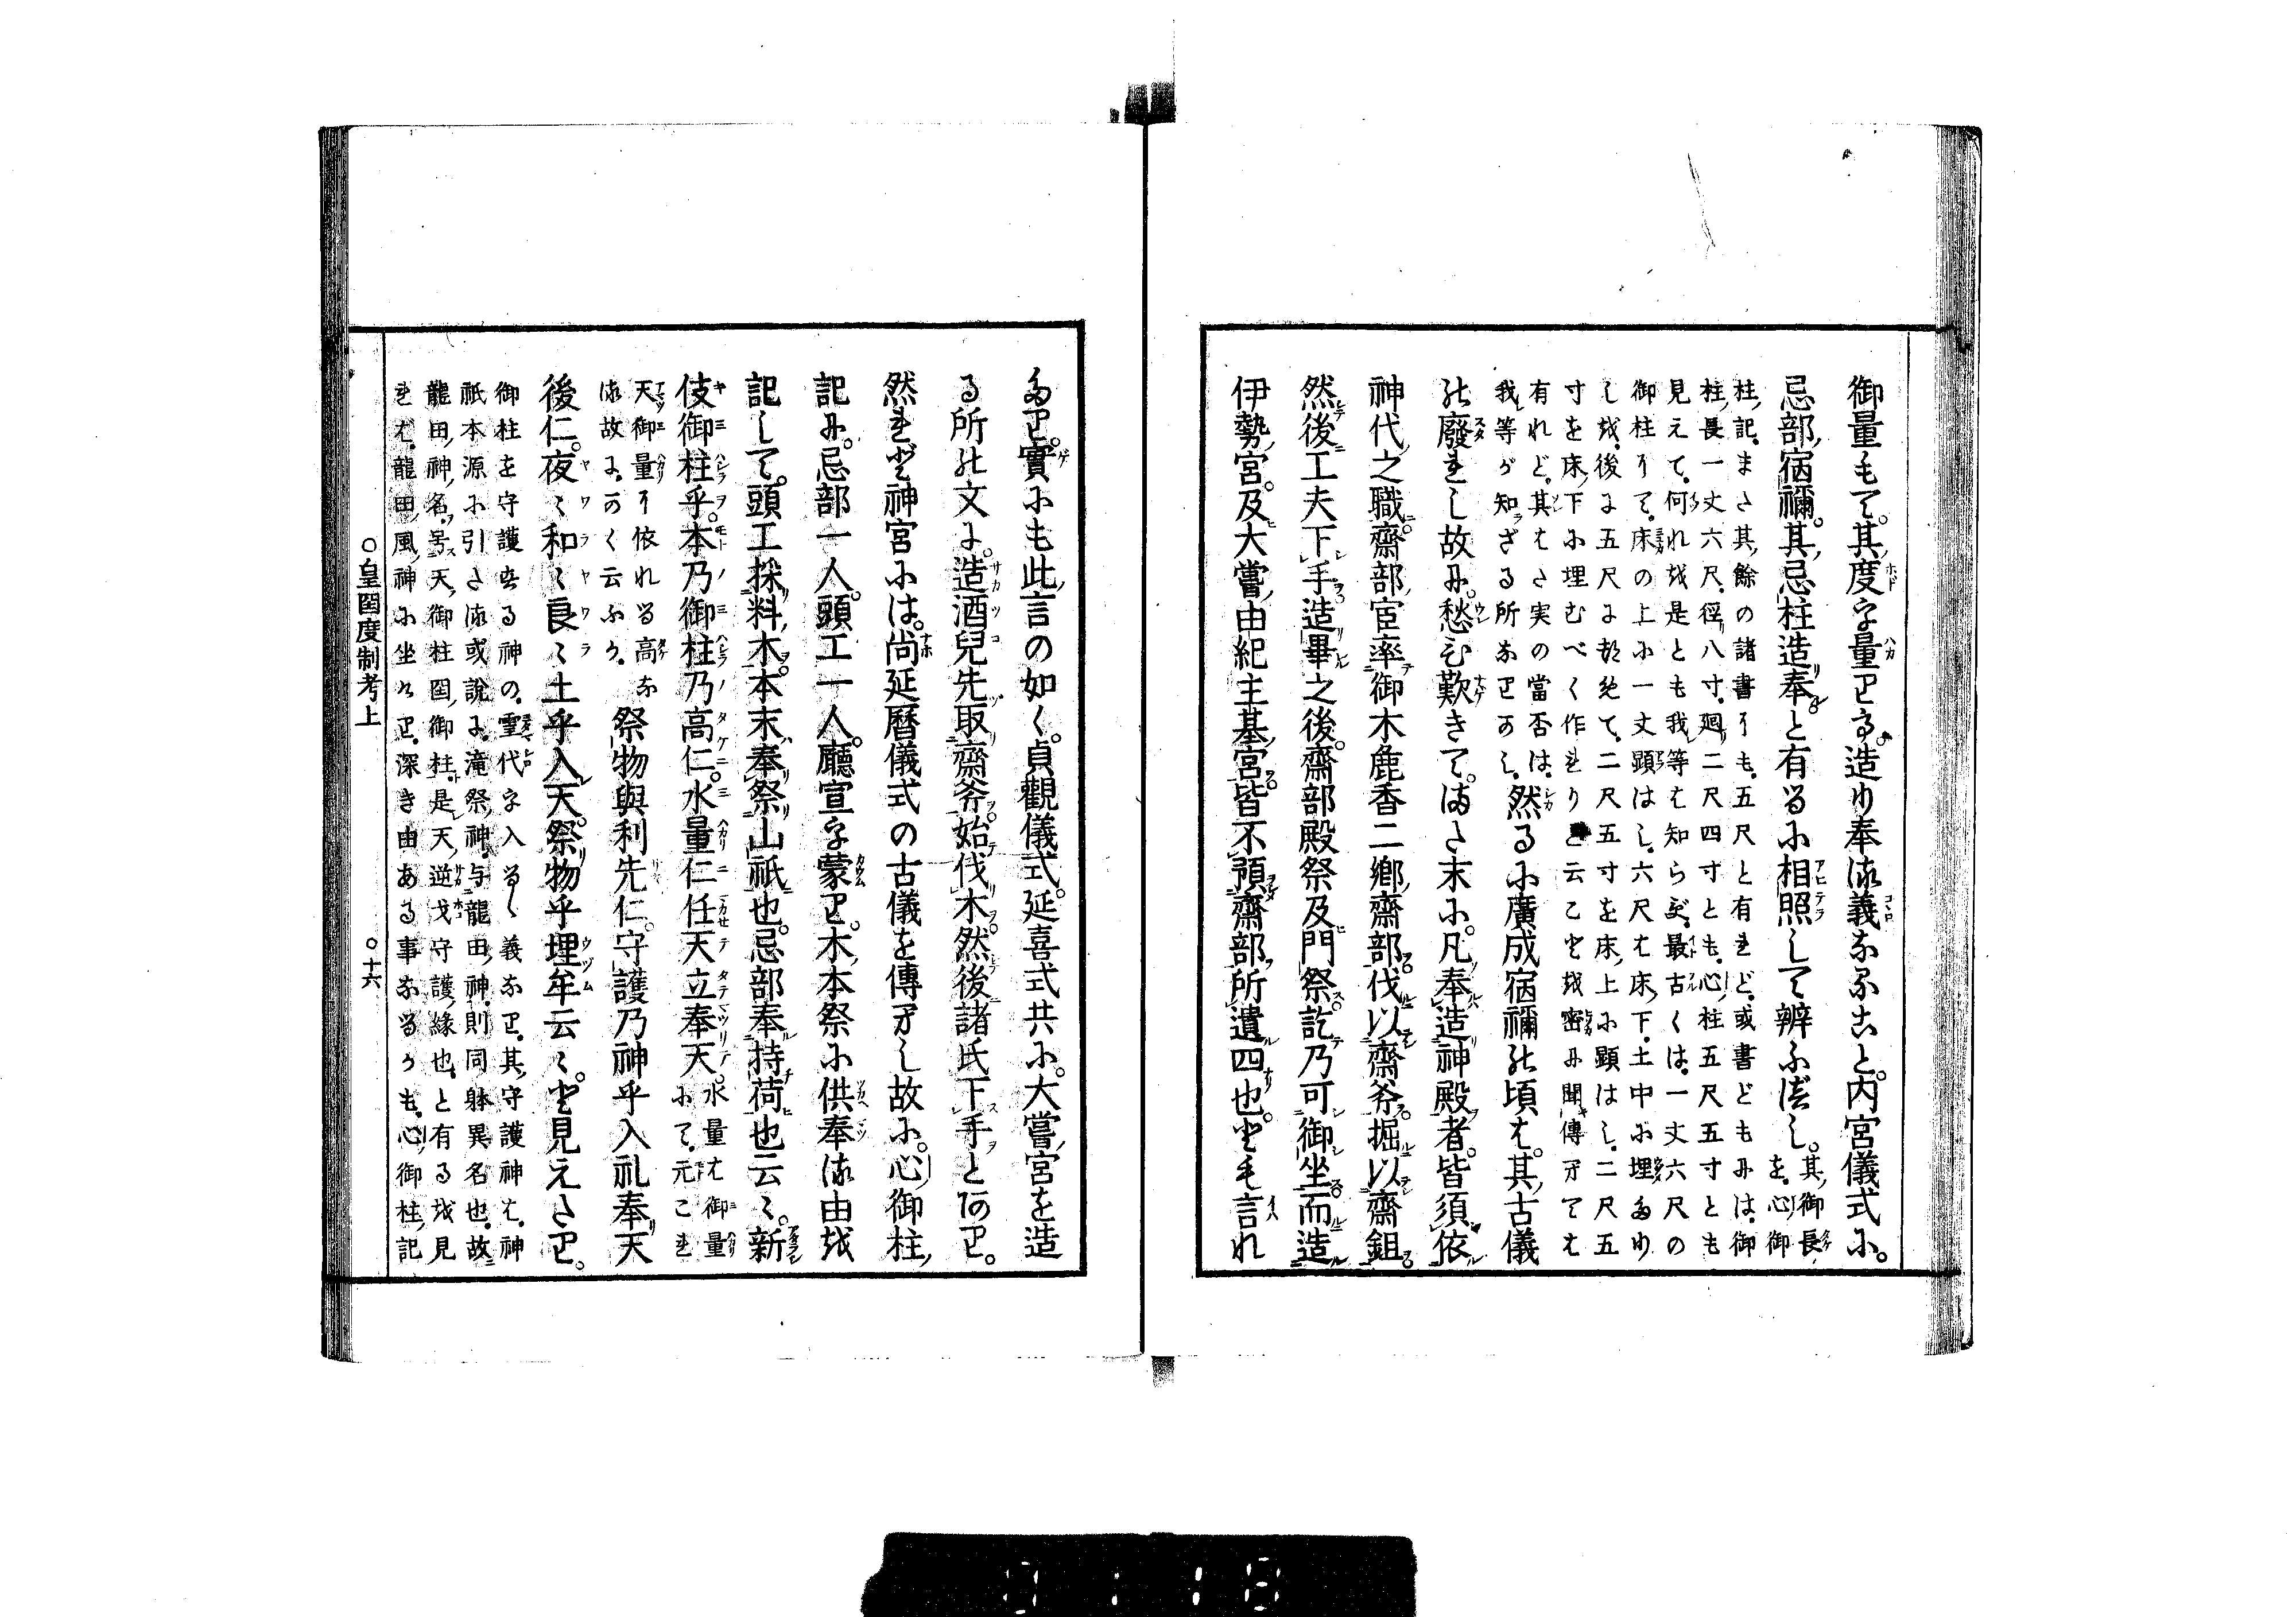 御量もて。其度を量りて。造り奉る義なること。内宮儀式に。
忌部宿禰。其忌柱造奉と有るに相照して辨ふべし。其御長を。心御
柱記。また其餘の諸書にも。五尺と有れど。或書どもには。御
柱長一丈六尺。徑八寸。廻二尺四寸とも。心柱五尺五寸とも
見えて。何れが是とも我等は知らず。最古くは。一丈六尺の
御柱にて。床の上に一丈顕はし。六尺は床下。土中に埋たり
しが。後に五尺に切めて。二尺五寸を床上に顕はし。二尺五
寸を床下に埋むべく作れりと云ことが密に聞傳へては
有れど。其はた実の當否は。
我等が知ざる所なりかし。然るに廣成宿禰の頃は。其古儀
の廢れし故に。愁ひ歎きて。また末に。凡奉造神殿者。皆須依
神代之職。齋部官率御木鹿香二郷齋部。伐以齋斧。掘以齋鉏。
然後工夫下手。造畢之後。齋部殿祭及門祭。訖乃可御坐。而造
伊勢宮。及大嘗由紀主基宮。皆不預齋部。所遺四也。とも言れ
たり。實にも此言の如く。貞觀儀式。延喜式共に。大嘗宮を造
る所の文に。造酒兒先取齋斧。始伐木。然後諸氏下手とあり。
然れど神宮には。尚延暦儀式の古儀を傳へし故に。心御柱
記に。忌部一人。頭工一人。廳宣を蒙り。木本祭に供奉る由を
記して。頭工採料木。本末奉祭山祇也。忌部奉持荷也云〻。新
伎御柱乎。本乃御柱乃高仁。水量仁任天立奉天。水量は御量にて。元これ
天御量に依れる高な
る故に。かく云ふか。祭物與利先仁。守護乃神乎入礼奉天
後仁。夜〻和〻良〻土乎入天。祭物乎埋牟云〻。と見えたり。
御柱を守護する神の。霊代を入るゝ義なり。其守護神は。神
祇本源に引たる或説に。滝祭神。与龍田神。則同躰異名也。故
龍田神名。号天御柱国御柱。是天逆戈守護緣也。と有るを見
れば。龍田風神に坐せり。深き由ある事なるかも。心御柱記
○皇國度制考上　○十六